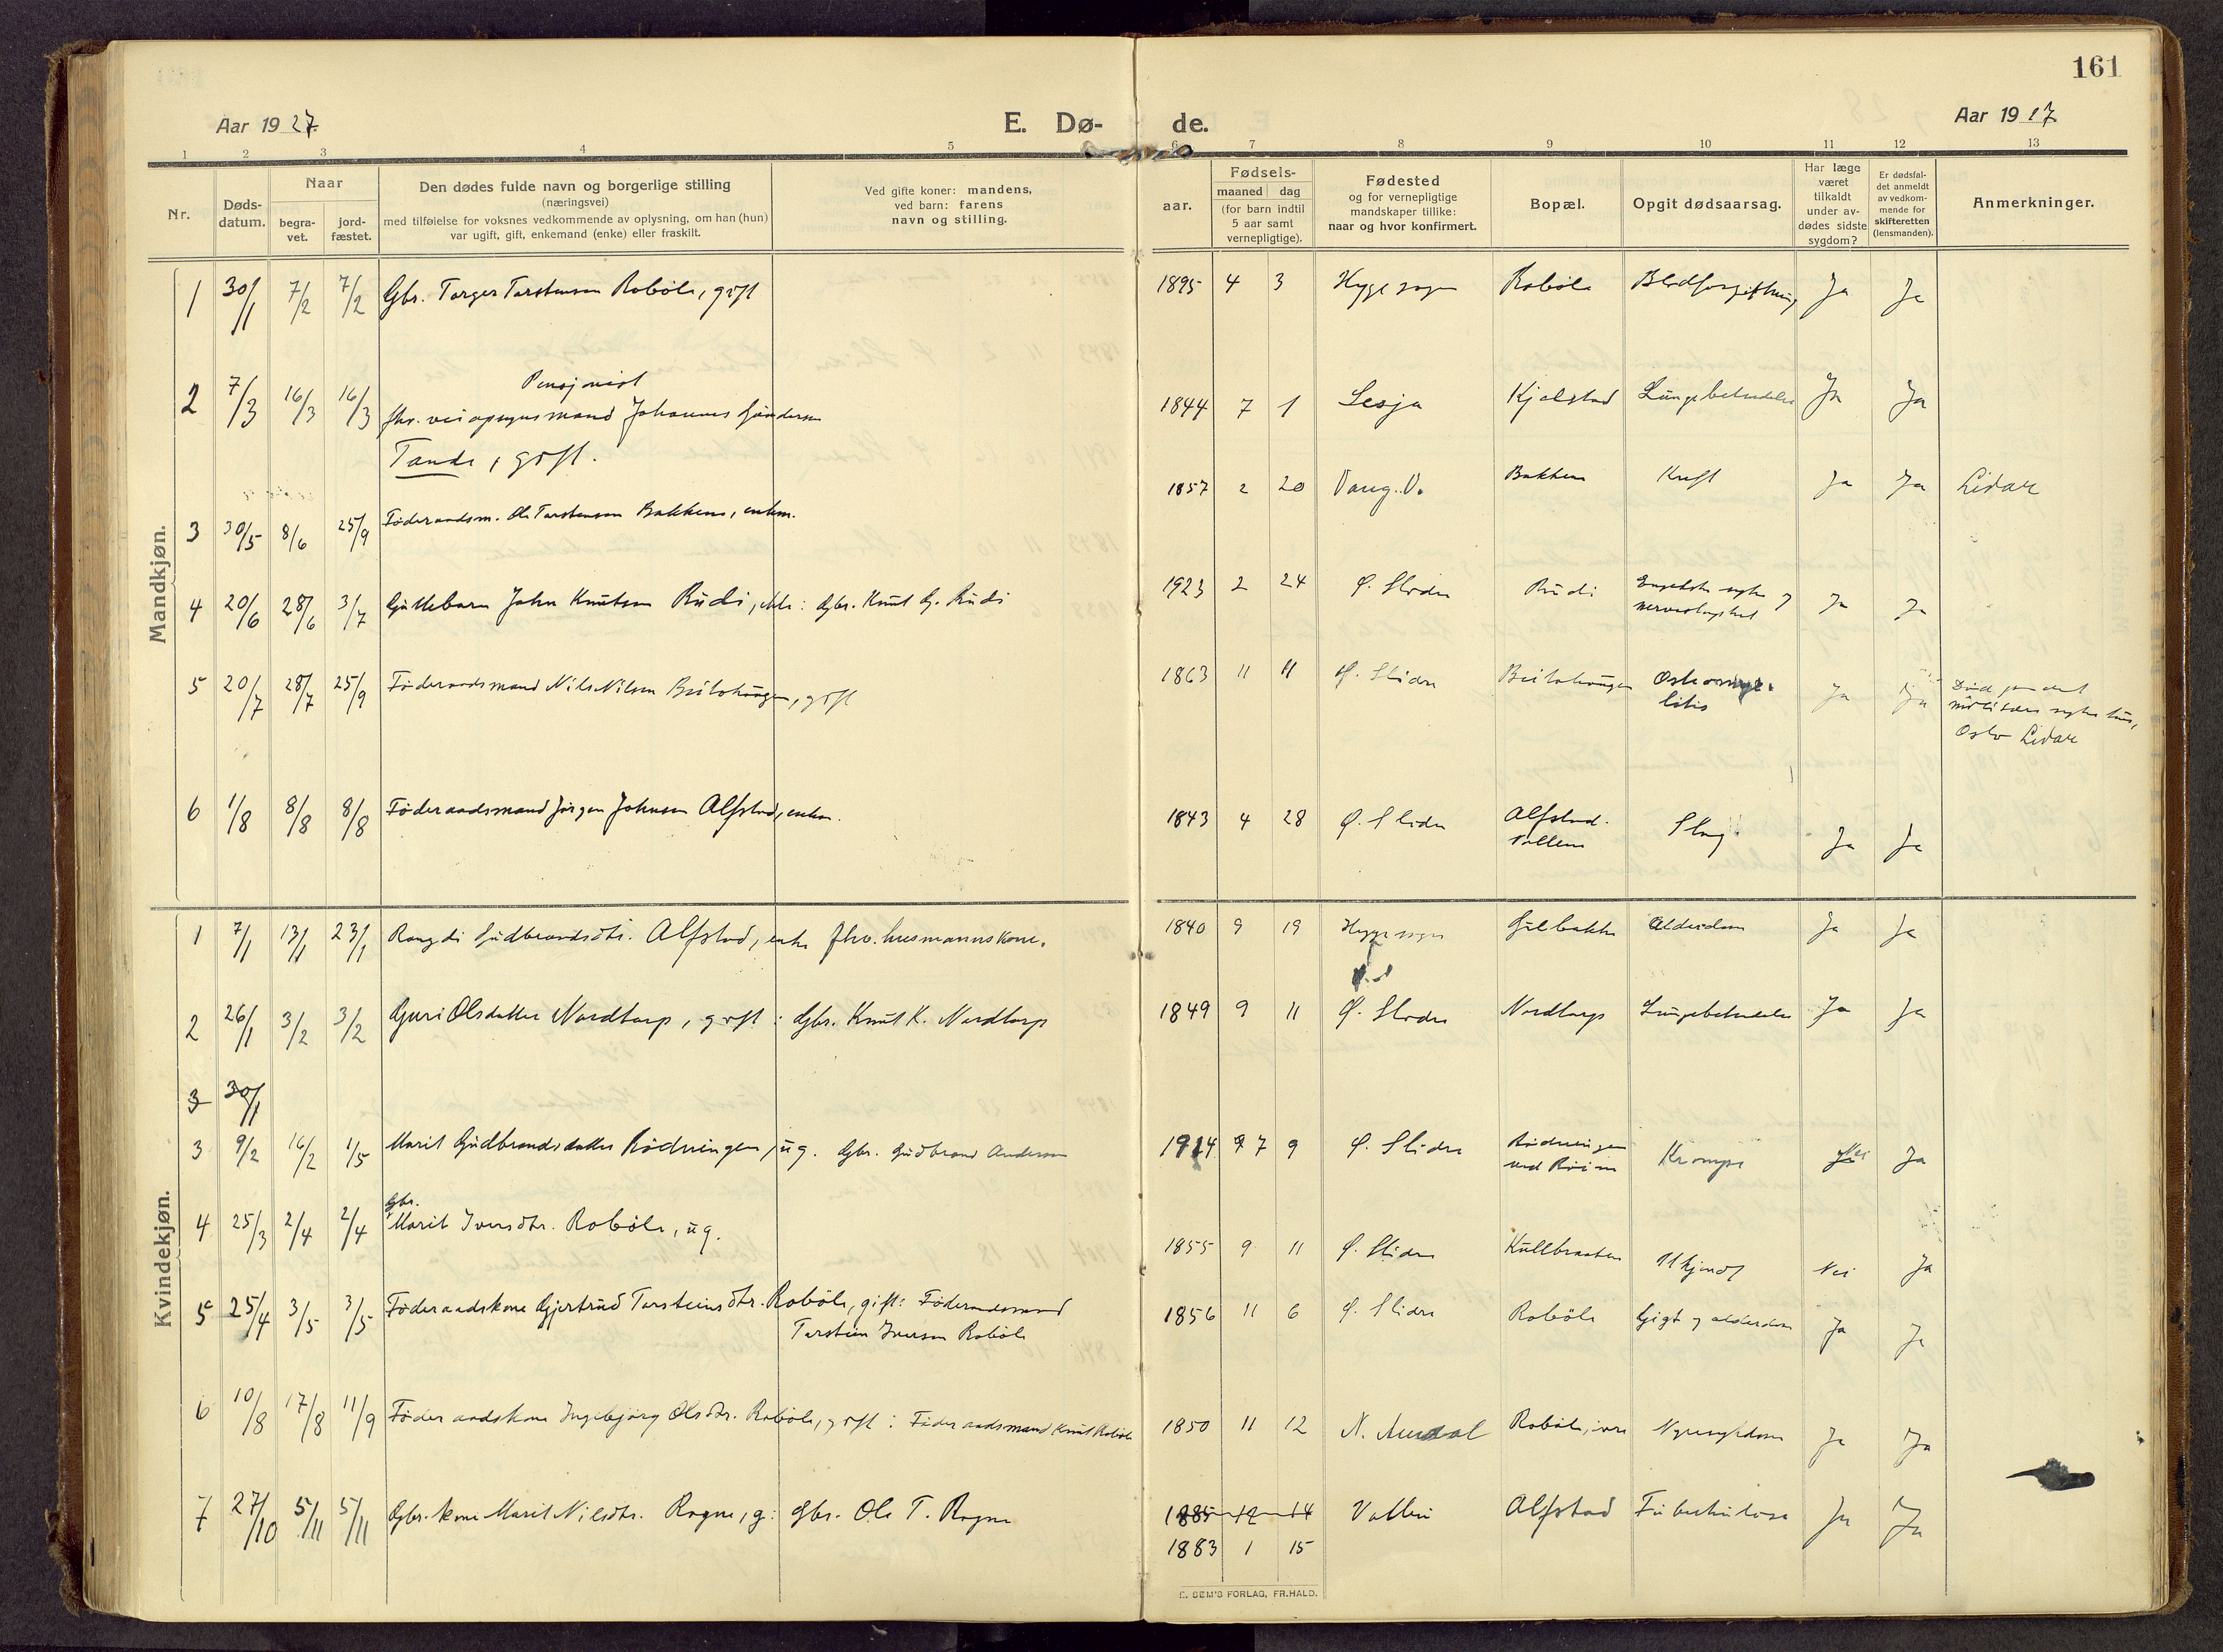 161
Aar 1927
E. Dø-
de.
Aar 1927
1 2 3 4 5 6 7 8 9 10 11 12 13
Nr.
Døds-
datum.
Naar
begra-
vet.
jord-
fæstet.
Den dødes fulde navn og borgerlige stilling
(næringsvei)
med tilføielse for voksnes vedkommende av oplysning, om han (hun)
var ugift, gift, enkemand (enke) eller fraskilt.
Ved gifte koner: mandens,
ved barn: farens
navn og stilling.
aar.
Fødsels-
maaned dag
(for barn indtil
5 aar samt
vernepligtige).
Fødested
og for vernepligtige
mandskaper tillike:
naar og hvor konfirmert.
Bopæl.
Opgit dødsaarsag.
Har læge
været
tilkaldt
under av-
dødes sidste
sygdom?
Er dødsfal-
det anmeldt
av vedkom-
mende for
skifteretten
(lensmanden).
Anmerkninger.
Mandkjøn.
1 30/1 7/2 7/2 Gbr. Torger Torstensen Robøle, gift 1895 4 3 Hegge sogn Robøle Blodforgiftning Ja Ja
Pensjonist
2 7/3 16/3 16/3 fhv. veiopsynsmand Johannes Gundersen 1844 7 1 Lesja Kjelstad Lungebetendelse Ja Ja
Tande, gift.
3 30/5 8/6 25/9 Føderaadsm. Ole Torstensen Bakkene, enkem. 1857 2 20 Vang. V. Bakkene Kreft Ja Ja Lidar
4 20/6 28/6 3/7 Guttebarn John Knutsen Rudi, ekte: Gbr. Knut G. Rudi 1923 2 24 Ø. Slidre Rudi Engelske syke og Ja Ja
5 20/7 28/7 25/9 Føderaadsmand Nils Nilsen Beitohaugen, gift 1863 11 11 Ø. Slidre Beitohaugen Osteomye- Ja Ja Død paa det
litis militære sykehus,
Oslo Lidar
6 1/8 8/8 8/8 Føderaadsmand Jørgen Johnsen Alfstad, enkem. 1843 4 28 Ø. Slidre Alfstad- Slag Ja Ja
Kvindekjøn.
1 7/1 13/1 23/1 Rangdi Gudbrandsdtr. Alfstad, enke fhv. husmannskone. 1840 9 19 Hegge sogn Gilbakke Alderdom Ja Ja
2 26/1 3/2 3/2 Guri Olsdatter Nordtorp, gift: Gbr. Knut K. Nordtorp 1849 9 11 Ø. Slidre Nordtorp Lungebetendelse Ja Ja
3 30/1
3 9/2 16/2 1/5 Marit Gudbrandsdatter Rødningen, ug. Gbr. Gudbrand Andersen 1914 7 9 Ø. Slidre Rødningen Krampe Nei Ja
Gbr.
4 25/3 2/4 2/4 Marit Iversdtr. Robøle, ug. 1855 9 11 Ø. Slidre Kullbraaten Ukjendt Nei Ja
5 25/4 3/5 3/5 Føderaadskone Gjertrud Torsteinsdtr. Robøle, gift: Føderaadsmand 1856 11 6 Ø. Slidre Robøle Gigt og alderdom Ja Ja
Torstein Iversen Robøle
6 10/8 17/8 11/9 Føderaadskone Ingebjørg Olsdtr. Robøle, gift: Føderaadsmand Knut Robøle 1850 11 12 N. Aurdal Robøle, øvre Nyresygdom Ja Ja
7 27/10 5/11 5/11 Gbr. kone Marit Nilsdtr. Rogne, g: Gbr. Ole T. Rogne 1885 12 14 Volbu Alfstad Tuberkulose Ja Ja
1883 1 15
E. SEM'S FORLAG, FR.HALD.